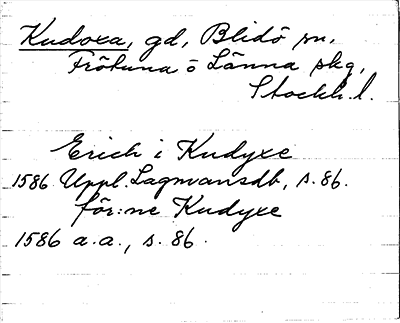 Kudoxa, gd, Blidö sn,
Frötuna o Länna skg,
Stockh. l.
Erich i Kudyxe
1586 Uppl. Lagmansdb, s. 86.
för:ne Kudyxe
1586 a.a., s. 86.